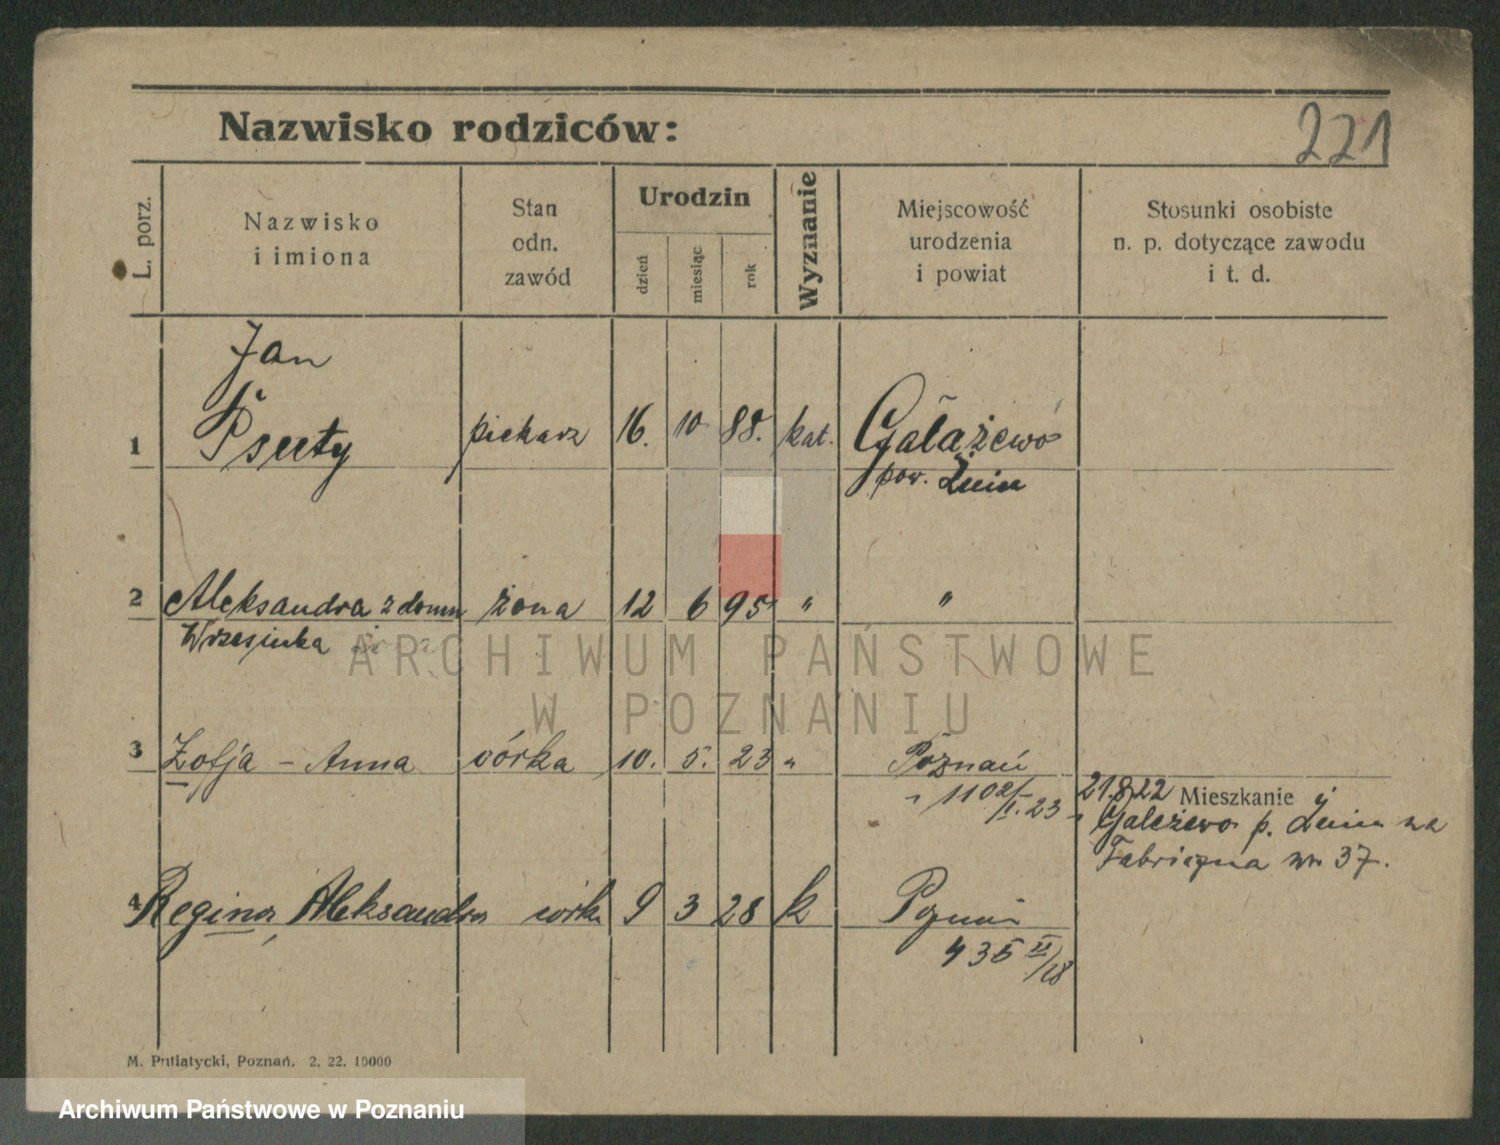 Nazwisko rodziców:
221
L. porz.
Nazwisko
i imiona
Stan
odn.
zawód
Urodzin
dzień
miesiąc
rok
Wyznanie
Miejscowość
urodzenia
i powiat
Stosunki osobiste
n. p. dotyczące zawodu
i t. d.
Jan
1 Psuty piekarz 16. 10. 88. kat. Gałażewo
pow. Żnin
2 Aleksandra z domu żona 12 6 95 " "
Wrzesinka
3 Zofja - Anna córka 10. 5. 23 " Poznań
1102/I. 23
21.8.22 Mieszkanie
Gależewo p. Żnin na
Fabriczna nr 37.
4 Regina, Aleksandra córka 9 3 28 k Poznań
435 II/28
M. Putiatycki, Poznań. 2. 22. 10000
ARCHIWUM PAŃSTWOWE
W POZNANIU
Archiwum Państwowe w Poznaniu